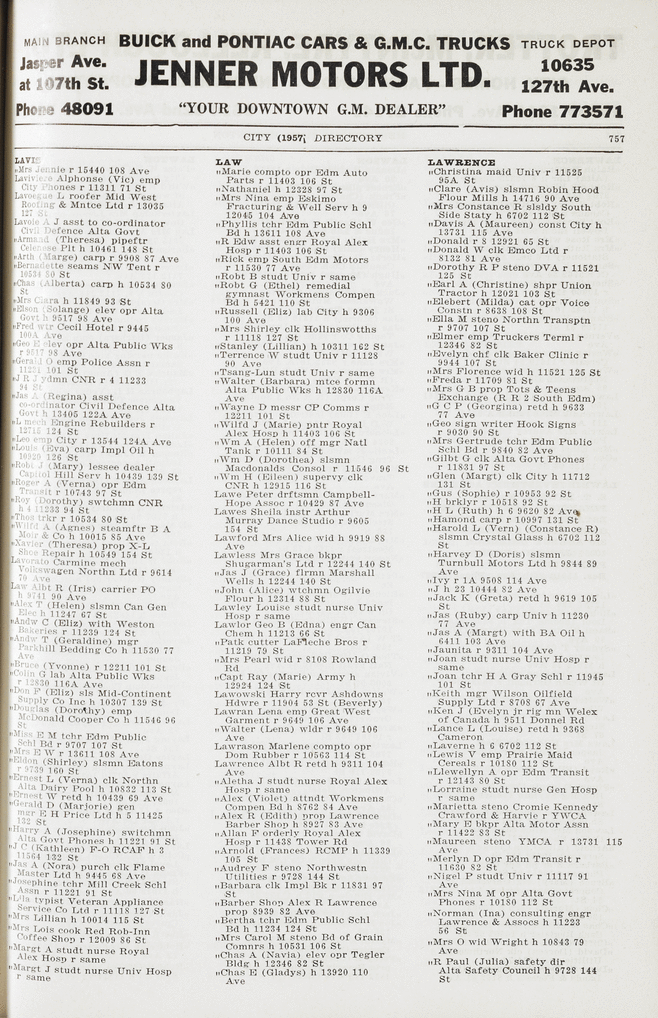 MAIN BRANCH
Jasper Ave.
at 107th St.
Phone 48091
BUICK and PONTIAC CARS & G.M.C. TRUCKS
JENNER MOTORS LTD.
"YOUR DOWNTOWN G.M. DEALER"
TRUCK DEPOT
10635
127th Ave.
Phone 773571
CITY (1957) DIRECTORY 757
LAVIE
"Mrs Jennie r 15440 108 Ave
Laviviere Alphonse (Vic) emp
City Phones r 11311 71 St
Lavoegue L roofer Mid West
Roofing & Mntce Ltd r 13035
127 St
Lavoie A J asst to co-ordinator
Civil Defence Alta Govt
"Armand (Theresa) pipeftr
Celenase Plt h 10461 148 St
"Arth (Marge) carp r 9908 87 Ave
"Bernadette seams NW Tent r
10534 80 St
"Chas (Alberta) carp h 10534 80
St
"Mrs Clara h 11849 93 St
"Elson (Solange) elev opr Alta
Govt h 9517 98 Ave
"Fred wtr Cecil Hotel r 9445
100A Ave
"Geo E elev opr Alta Public Wks
r 9517 98 Ave
"Gerald O emp Police Assn r
11221 101 St
"J R J ydmn CNR r 4 11233
94 St
"Jas A (Regina) asst
co-ordinator Civil Defence Alta
Govt h 13405 122A Ave
"L mech Engine Rebuilders r
12715 124 St
"Leo emp City r 13544 124A Ave
"Louis (Eva) carp Impl Oil h
10929 126 St
"Robt J (Mary) lessee dealer
Capitol Hill Serv h 10439 139 St
"Roger A (Verna) opr Edm
Transit r 10743 97 St
"Roy (Dorothy) swtchmn CNR
h 4 11233 94 St
"Theo trkr r 10534 80 St
"Wilfd A (Agnes) steamftr B A
Moir & Co h 10015 85 Ave
"Xavier (Theresa) prop X-L
Shoe Repair h 10549 154 St
Lavorato Carmine mech
Volkswagen Northn Ltd r 9614
70 Ave
Law Albt R (Iris) carrier PO
h 9741 90 Ave
"Alex T (Helen) slsmn Can Gen
Elec h 11247 67 St
"Andw C (Eliz) with Weston
Bakeries r 11239 124 St
"Andw T (Geraldine) mgr
Parkhill Bedding Co h 11530 77
Ave
"Bruce (Yvonne) r 12211 101 St
"Colin G lab Alta Public Wks
r 12830 116A Ave
"Don F (Eliz) sls Mid-Continent
Supply Co Inc h 10307 139 St
"Douglas (Dorothy) emp
McDonald Cooper Co h 11546 96
St
"Miss E M tchr Edm Public
Schl Bd r 9707 107 St
"Mrs E W r 13611 108 Ave
"Eldon (Shirley) slsmn Eatons
r 9739 160 St
"Ernest L (Verna) clk Northn
Alta Dairy Pool h 10832 113 St
"Ernest W retd h 10439 69 Ave
"Gerald D (Marjorie) gen
mgr E H Price Ltd h 5 11425
132 St
"Harry A (Josephine) switchmn
Alta Govt Phones h 11221 91 St
"J C (Kathleen) F-O RCAF h 3
11564 132 St
"Jas A (Nora) purch clk Flame
Master Ltd h 9445 68 Ave
"Josephine tchr Mill Creek Schl
Assn r 11221 91 St
"Lila typist Veteran Appliance
Service Co Ltd r 11118 127 St
"Mrs Lillian h 10014 115 St
"Mrs Lois cook Red Rob-Inn
Coffee Shop r 12009 86 St
"Margt A studt nurse Royal
Alex Hosp r same
"Margt J studt nurse Univ Hosp
r same
LAW
"Marie compto opr Edm Auto
Parts r 11403 106 St
"Nathaniel h 12328 97 St
"Mrs Nina emp Eskimo
Fracturing & Well Serv h 9
12045 104 Ave
"Phyllis tchr Edm Public Schl
Bd h 13611 108 Ave
"R Edw asst engr Royal Alex
Hosp r 11403 106 St
"Rick emp South Edm Motors
r 11530 77 Ave
"Robt B studt Univ r same
"Robt G (Ethel) remedial
gymnast Workmens Compen
Bd h 5421 110 St
"Russell (Eliz) lab City h 9306
100 Ave
"Mrs Shirley clk Hollinswotths
r 11118 127 St
"Stanley (Lillian) h 10311 162 St
"Terrence W studt Univ r 11128
90 Ave
"Tsang-Lun studt Univ r same
"Walter (Barbara) mtce formn
Alta Public Wks h 12830 116A
Ave
"Wayne D messr CP Comms r
12211 101 St
"Wilfd J (Marie) pntr Royal
Alex Hosp h 11403 106 St
"Wm A (Helen) off mgr Natl
Tank r 10111 84 St
"Wm D (Dorothea) slsmn
Macdonalds Consol r 11546 96 St
"Wm H (Eileen) supervy clk
CNR h 12915 116 St
Lawe Peter drftsmn Campbell-
Hope Assoc r 10429 87 Ave
Lawes Sheila instr Arthur
Murray Dance Studio r 9605
154 St
Lawford Mrs Alice wid h 9919 88
Ave
Lawless Mrs Grace bkpr
Shugarman's Ltd r 12244 140 St
"Jas J (Grace) flrmn Marshall
Wells h 12244 140 St
"John (Alice) wtchmn Ogilvie
Flour h 12314 88 St
Lawley Louise studt nurse Univ
Hosp r same
Lawlor Geo B (Edna) engr Can
Chem h 11213 66 St
"Patk cutter LaFleche Bros r
11219 79 St
"Mrs Pearl wid r 8108 Rowland
Rd
"Capt Ray (Marie) Army h
12924 124 St
Lawowski Harry rcvr Ashdowns
Hdwre r 11904 53 St (Beverly)
Lawran Lena emp Great West
Garment r 9649 106 Ave
"Walter (Lena) wldr r 9649 106
Ave
Lawrason Marlene compto opr
Dom Rubber r 10563 114 St
Lawrence Albt R retd h 9311 104
Ave
"Aletha J studt nurse Royal Alex
Hosp r same
"Alex (Violet) attndt Workmens
Compen Bd h 8762 84 Ave
"Alex R (Edith) prop Lawrence
Barber Shop h 8927 83 Ave
"Allan F orderly Royal Alex
Hosp r 11438 Tower Rd
"Arnold (Frances) RCMP h 11339
105 St
"Audrey F steno Northwestn
Utilities r 9728 144 St
"Barbara clk Impl Bk r 11831 97
St
"Barber Shop Alex R Lawrence
prop 8939 82 Ave
"Bertha tchr Edm Public Schl
Bd h 11234 124 St
"Mrs Carol M steno Bd of Grain
Comnrs h 10531 106 St
"Chas A (Navia) elev opr Tegler
Bldg h 12346 82 St
"Chas E (Gladys) h 13920 110
Ave
LAWRENCE
"Christina maid Univ r 11525
95A St
"Clare (Avis) slsmn Robin Hood
Flour Mills h 14716 90 Ave
"Mrs Constance R slsldy South
Side Staty h 6702 112 St
"Davis A (Maureen) const City h
13731 115 Ave
"Donald r 8 12921 65 St
"Donald W clk Emco Ltd r
8132 81 Ave
"Dorothy R P steno DVA r 11521
125 St
"Earl A (Christine) shpr Union
Tractor h 12021 103 St
"Elebert (Milda) cat opr Voice
Constn r 8638 108 St
"Ella M steno Northn Transptn
r 9707 107 St
"Elmer emp Truckers Terml r
12346 82 St
"Evelyn chf clk Baker Clinic r
9944 107 St
"Mrs Florence wid h 11521 125 St
"Freda r 11709 81 St
"Mrs G B prop Tots & Teens
Exchange (R R 2 South Edm)
"G C P (Georgina) retd h 9633
77 Ave
"Geo sign writer Hook Signs
r 9030 90 St
"Mrs Gertrude tchr Edm Public
Schl Bd r 9840 82 Ave
"Gilbt G clk Alta Govt Phones
r 11831 97 St
"Glen (Margt) clk City h 11712
131 St
"Gus (Sophie) r 10953 92 St
"H brklyr r 10518 92 St
"H L (Ruth) h 6 9620 82 Ave
"Hamond carp r 10997 131 St
"Harold L (Vern) (Constance R)
slsmn Crystal Glass h 6702 112
St
"Harvey D (Doris) slsmn
Turnbull Motors Ltd h 9844 89
Ave
"Ivy r 1A 9508 114 Ave
"J h 23 10444 82 Ave
"Jack K (Greta) retd h 9619 105
St
"Jas (Ruby) carp Univ h 11230
77 Ave
"Jas A (Margt) with BA Oil h
6411 103 Ave
"Jaunita r 9311 104 Ave
"Joan studt nurse Univ Hosp r
same
"Joan tchr H A Gray Schl r 11945
101 St
"Keith mgr Wilson Oilfield
Supply Ltd r 8708 67 Ave
"Ken J (Evelyn jr rig mn Welex
of Canada h 9511 Donnel Rd
"Lance L (Louise) retd h 9368
Cameron
"Laverne h 6 6702 112 St
"Lewis V emp Prairie Maid
Cereals r 10180 112 St
"Llewellyn A opr Edm Transit
r 12143 80 St
"Lorraine studt nurse Gen Hosp
r same
"Marietta steno Cromie Kennedy
Crawford & Harvie r YWCA
"Mary E bkpr Alta Motor Assn
r 11422 83 St
"Maureen steno YMCA r 13731 115
Ave
"Merlyn D opr Edm Transit r
11630 82 St
"Nigel P studt Univ r 11117 91
Ave
"Mrs Nina M opr Alta Govt
Phones r 10180 112 St
"Norman (Ina) consulting engr
Lawrence & Assocs h 11223
56 St
"Mrs O wid Wright h 10843 79
Ave
"R Paul (Julia) safety dir
Alta Safety Council h 9728 144
St